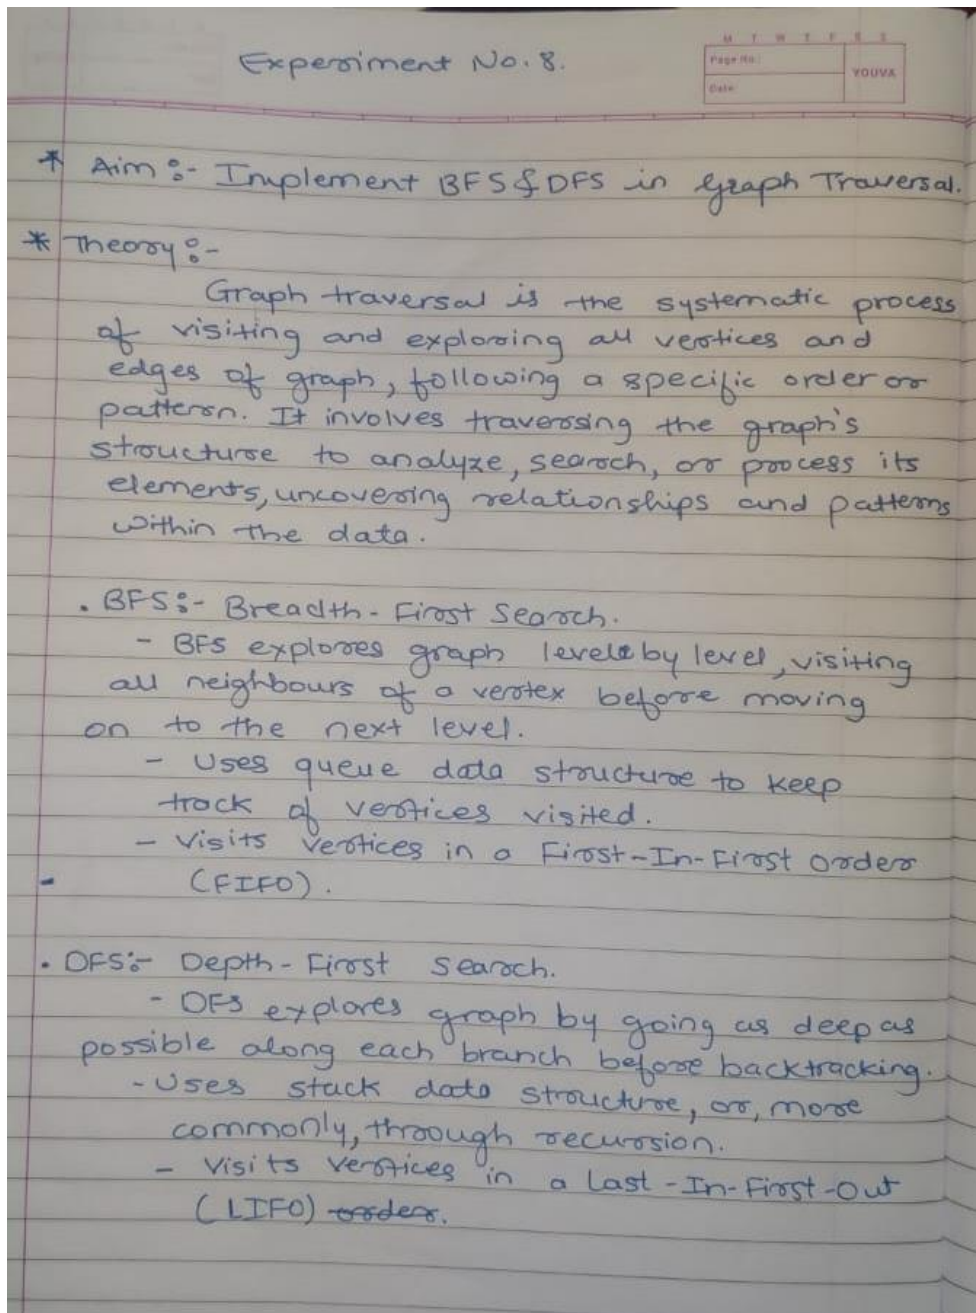 Experiment No. 8.
M T W T F S S
Page No.:
YOUVA
Date:
* Aim :- Implement BFS & DFS in Graph Traversal.
* Theory :-
Graph traversal is the systematic process
of visiting and exploring all vertices and
edges of graph, following a specific order or
pattern. It involves traversing the graph's
structure to analyze, search, or process its
elements, uncovering relationships and patterns
within the data.
. BFS :- Breadth - First Search.
- BFS explores graph level by level, visiting
all neighbours of a vertex before moving
on to the next level.
- Uses queue data structure to keep
track of vertices visited.
- Visits vertices in a First-In-First order
- (FIFO).
. DFS :- Depth - First Search.
- DFS explores graph by going as deep as
possible along each branch before backtracking.
- Uses stack data structure, or, more
commonly, through recursion.
- Visits vertices in a Last-In-First-Out
(LIFO) order.